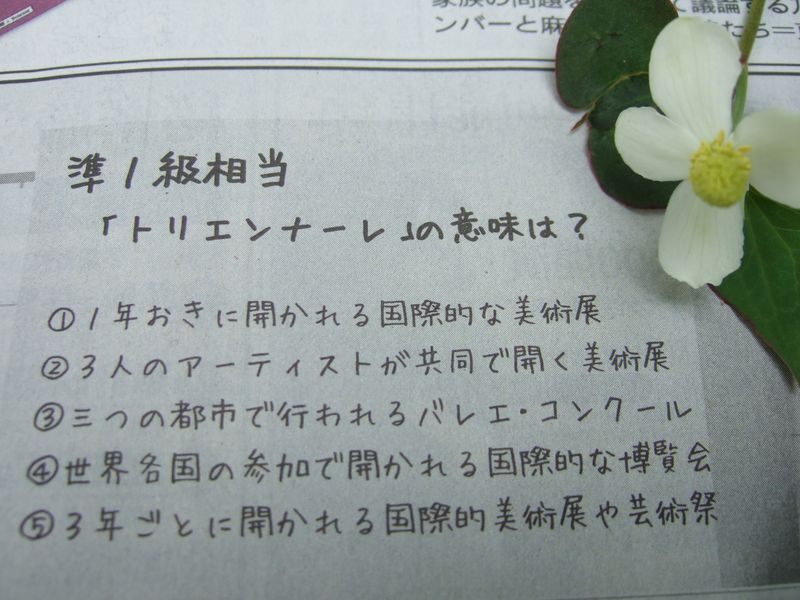 家族の問題を
議論する
ンバーと麻
準1級相当
「トリエンナーレ」の意味は?
①1年おきに開かれる国際的な美術展
②3人のアーティストが共同で開く美術展
③三つの都市で行われるバレエ・コンクール
④世界各国の参加で開かれる国際的な博覧会
⑤3年ごとに開かれる国際的美術展や芸術祭